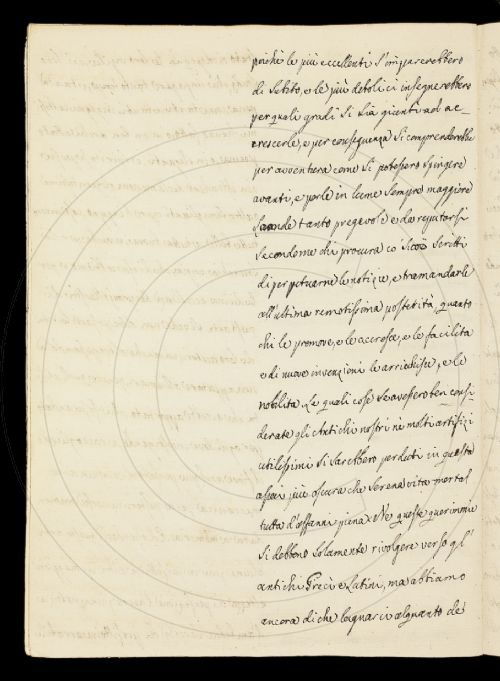 poichè le più eccellenti s'imparerebbero
di subito, e le più deboli ci insegnerebbero
per quali gradi si sia giunti ad ac-
crescerle, e per conseguenza si comprenderebbe
per avventura come si potessero spingere
avanti, e porle in lume sempre maggiore
tanto pregevole e da reputarsi
secondo me chi procura co' suoi scritti
di perpetuarne le notizie, e tramandarle
all'ultima remotissima posterità, quanto
chi le promove, e le accresce, e le facilita
e di nuove invenzioni le arrichisce, e le
nobilita. Le quali cose se avessero ben consi
derate gli Antichi nostri nè molti artifizi
utilissimi si sarebbero perduti in questa
assai più oscura che serena vita mortal
tutta d'affanni piena. Ne queste querimonie
si debbono solamente rivolgere verso gl'
antichi Greci e Latini, ma abbiamo
ancora di che lagnarci alquanto de'